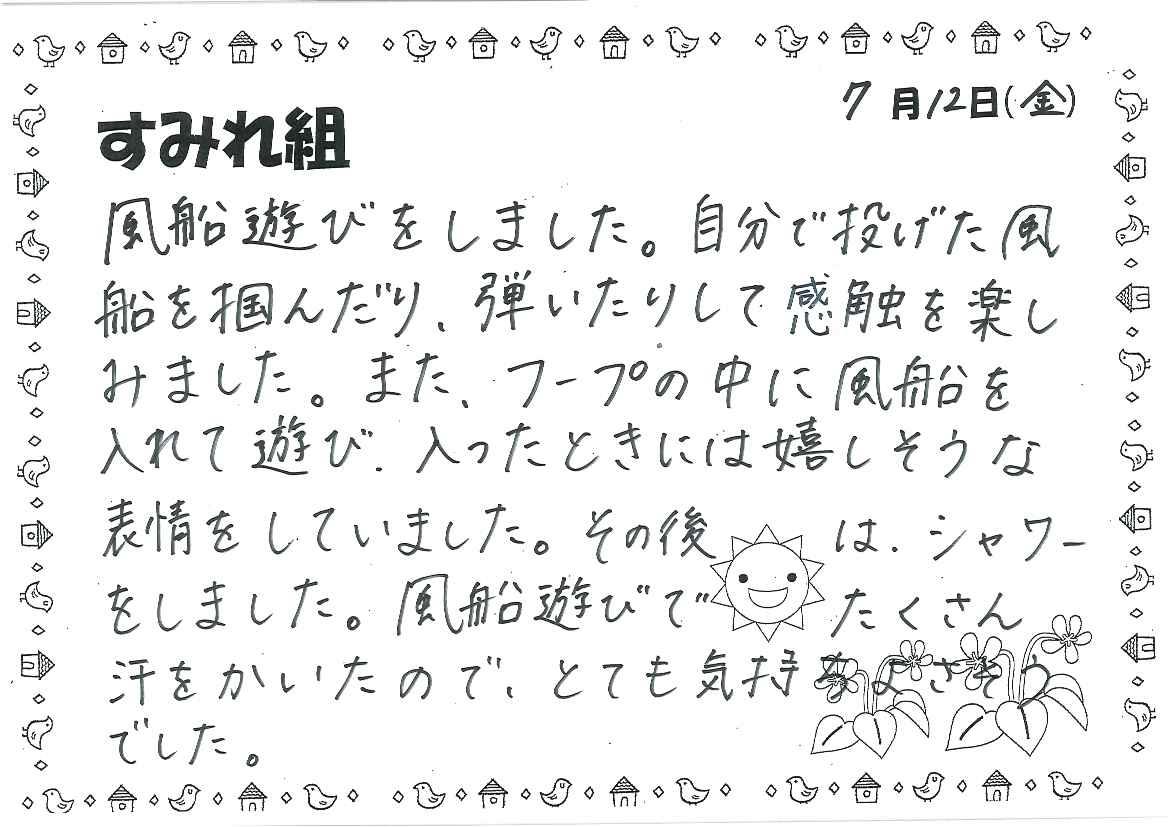 7月12日(金)
すみれ組
風船遊びをしました。自分で投げた風
船を掴んだり、弾いたりして感触を楽し
みました。また、フープの中に風船を
入れて遊び、入ったときには嬉しそうな
表情をしていました。その後は、シャワー
をしました。風船遊びでたくさん
汗をかいたので、とても気持ちよさそう
でした。